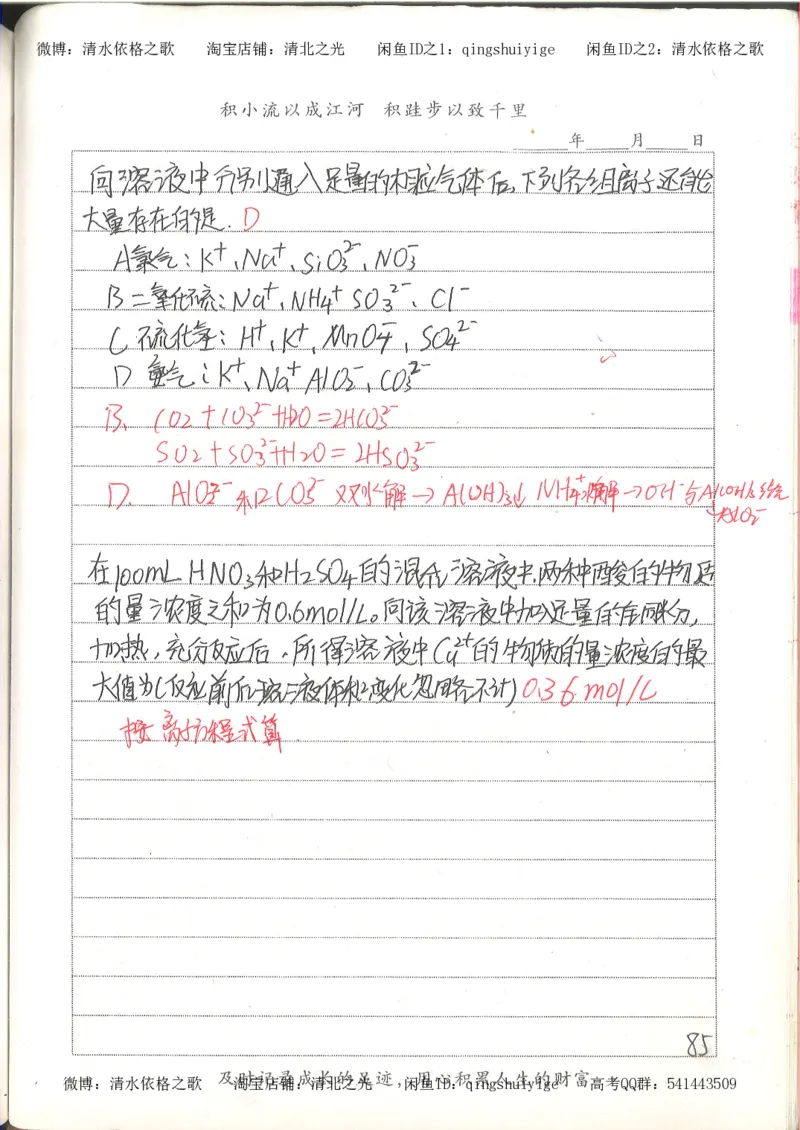 微博：清水依格之歌 淘宝店铺：清北之光 闲鱼ID之1：qingshuiyige 闲鱼ID之2：清水依格之歌
积小流以成江河 积跬步以致千里
年 月 日
向溶液中分别通入足量的相应气体后,下列各组离子还能
大量存在的是. D
A 氯气：K⁺、Na⁺、SiO₃²⁻、NO₃⁻
B 二氧化硫：Na⁺、NH₄⁺ SO₃²⁻、Cl⁻
C 硫化氢：H⁺、K⁺、MnO₄⁻、SO₄²⁻
D 氨气：K⁺、Na⁺ AlO₂⁻、CO₃²⁻
B、CO₂+CO₃²⁻+H₂O=2HCO₃⁻
SO₂+SO₃²⁻+H₂O=2HSO₃²⁻
D. 和 双水解→Al(OH)₃↓ NH₄⁺ 水解→OH⁻与Al(OH)₃
AlO₂⁻
在100mL HNO₃和H₂SO₄的混合溶液中,两种酸的物质
的量浓度之和为0.6mol/L。向该溶液中加入足量的
加热，充分反应后，所得溶液中Cu²⁺的物质的量浓度的最
大值为(反应前后溶液体积变化忽略不计) 0.36mol/L
按离子方程式算
85
及时记录成长的足迹，用心积累人生的财富
微博：清水依格之歌 淘宝店铺：清北之光 闲鱼ID：qingshuiyige 高考QQ群：541443509